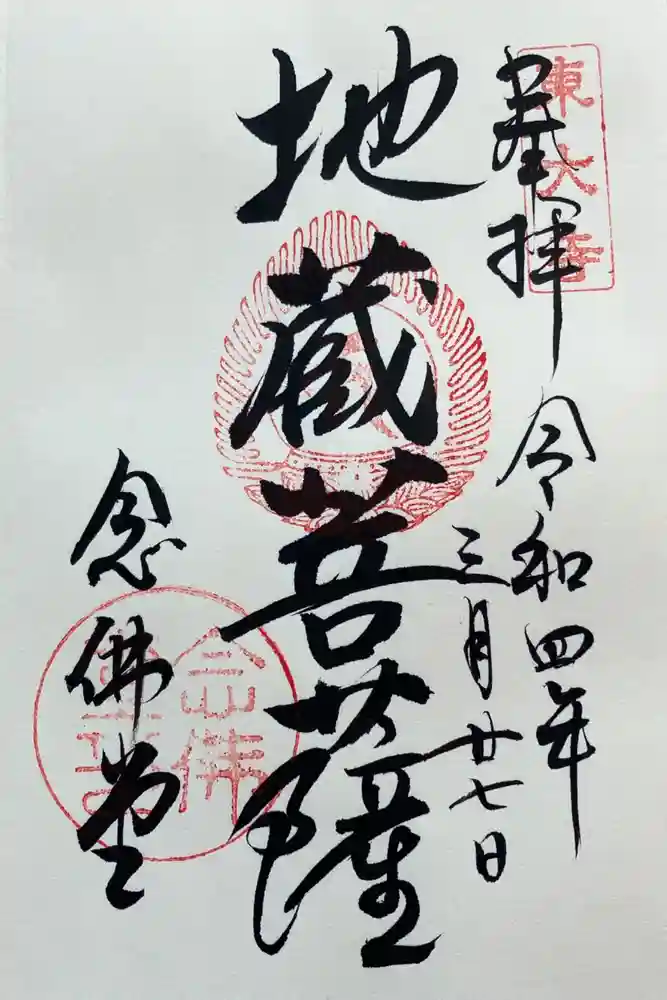 東大寺
奉拝
令和四年
三月廿七日
地蔵菩薩
念佛堂